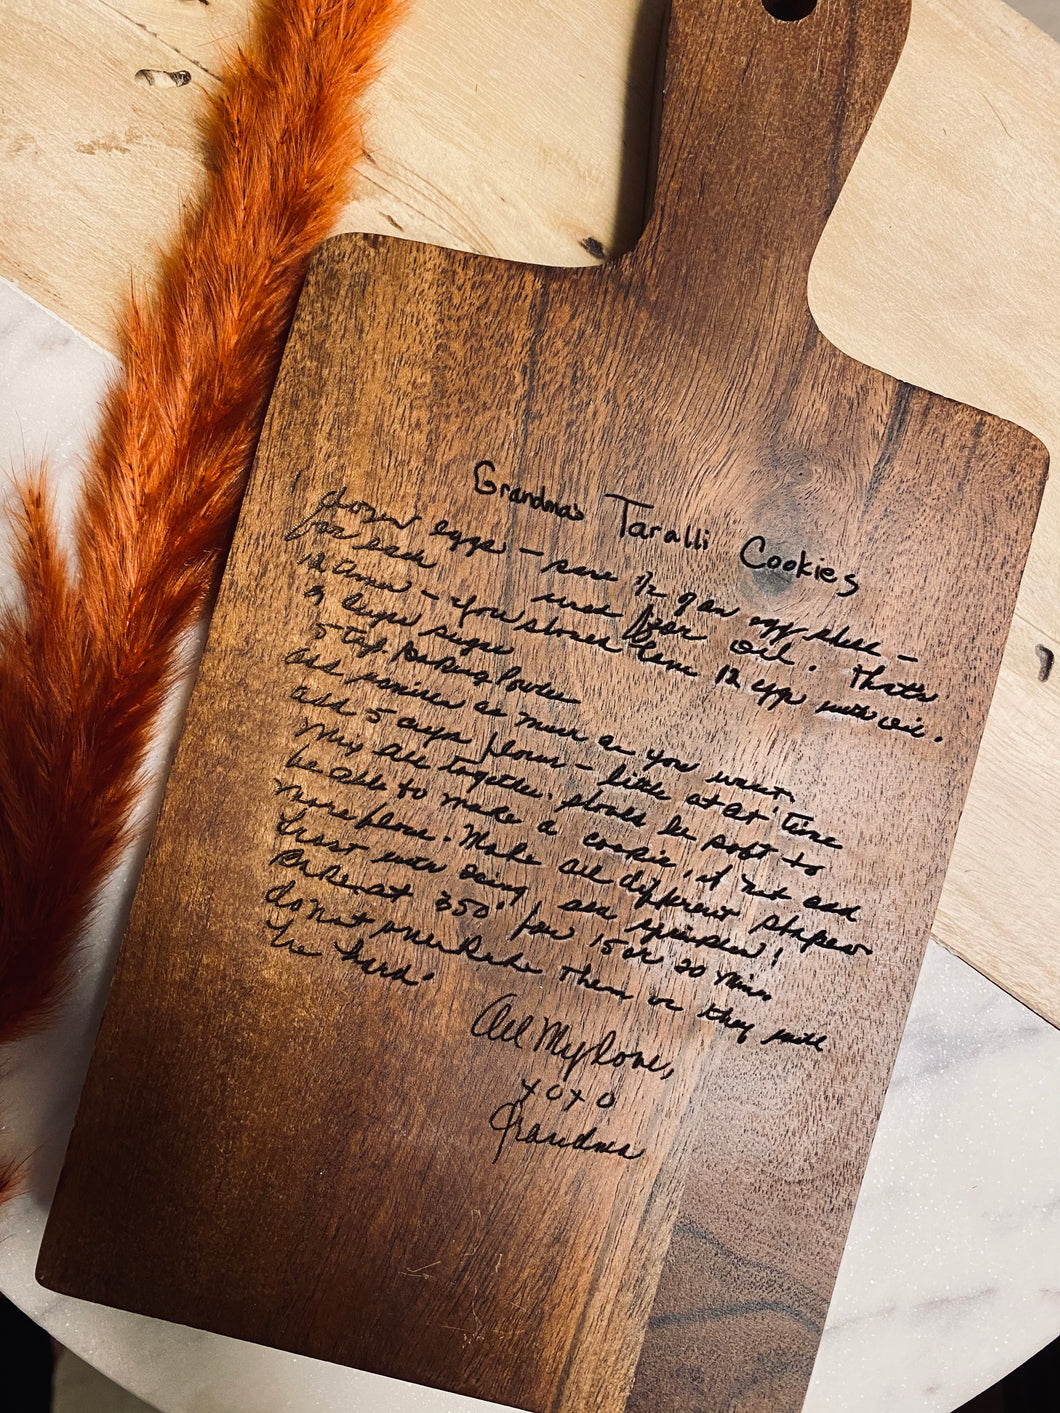 Grandma's Taralli Cookies
dozen eggs - save 1/2 of an egg shell -
for each used for oil. That's
12 times - you should have 12 egg with oil.
3 cups sugar
5 tsp. Baking Powder
add vanilla as much as you want
add 5 cups flour - little at a time
Mix all together. should be soft to
be able to make a cookie, if not add
more flour. Make all different shapes
frost with icing and sprinkles!
Bake at 350° for 15 or 20 min
do not over bake them or they will
be hard.
All My Love,
XOXO
Grandma